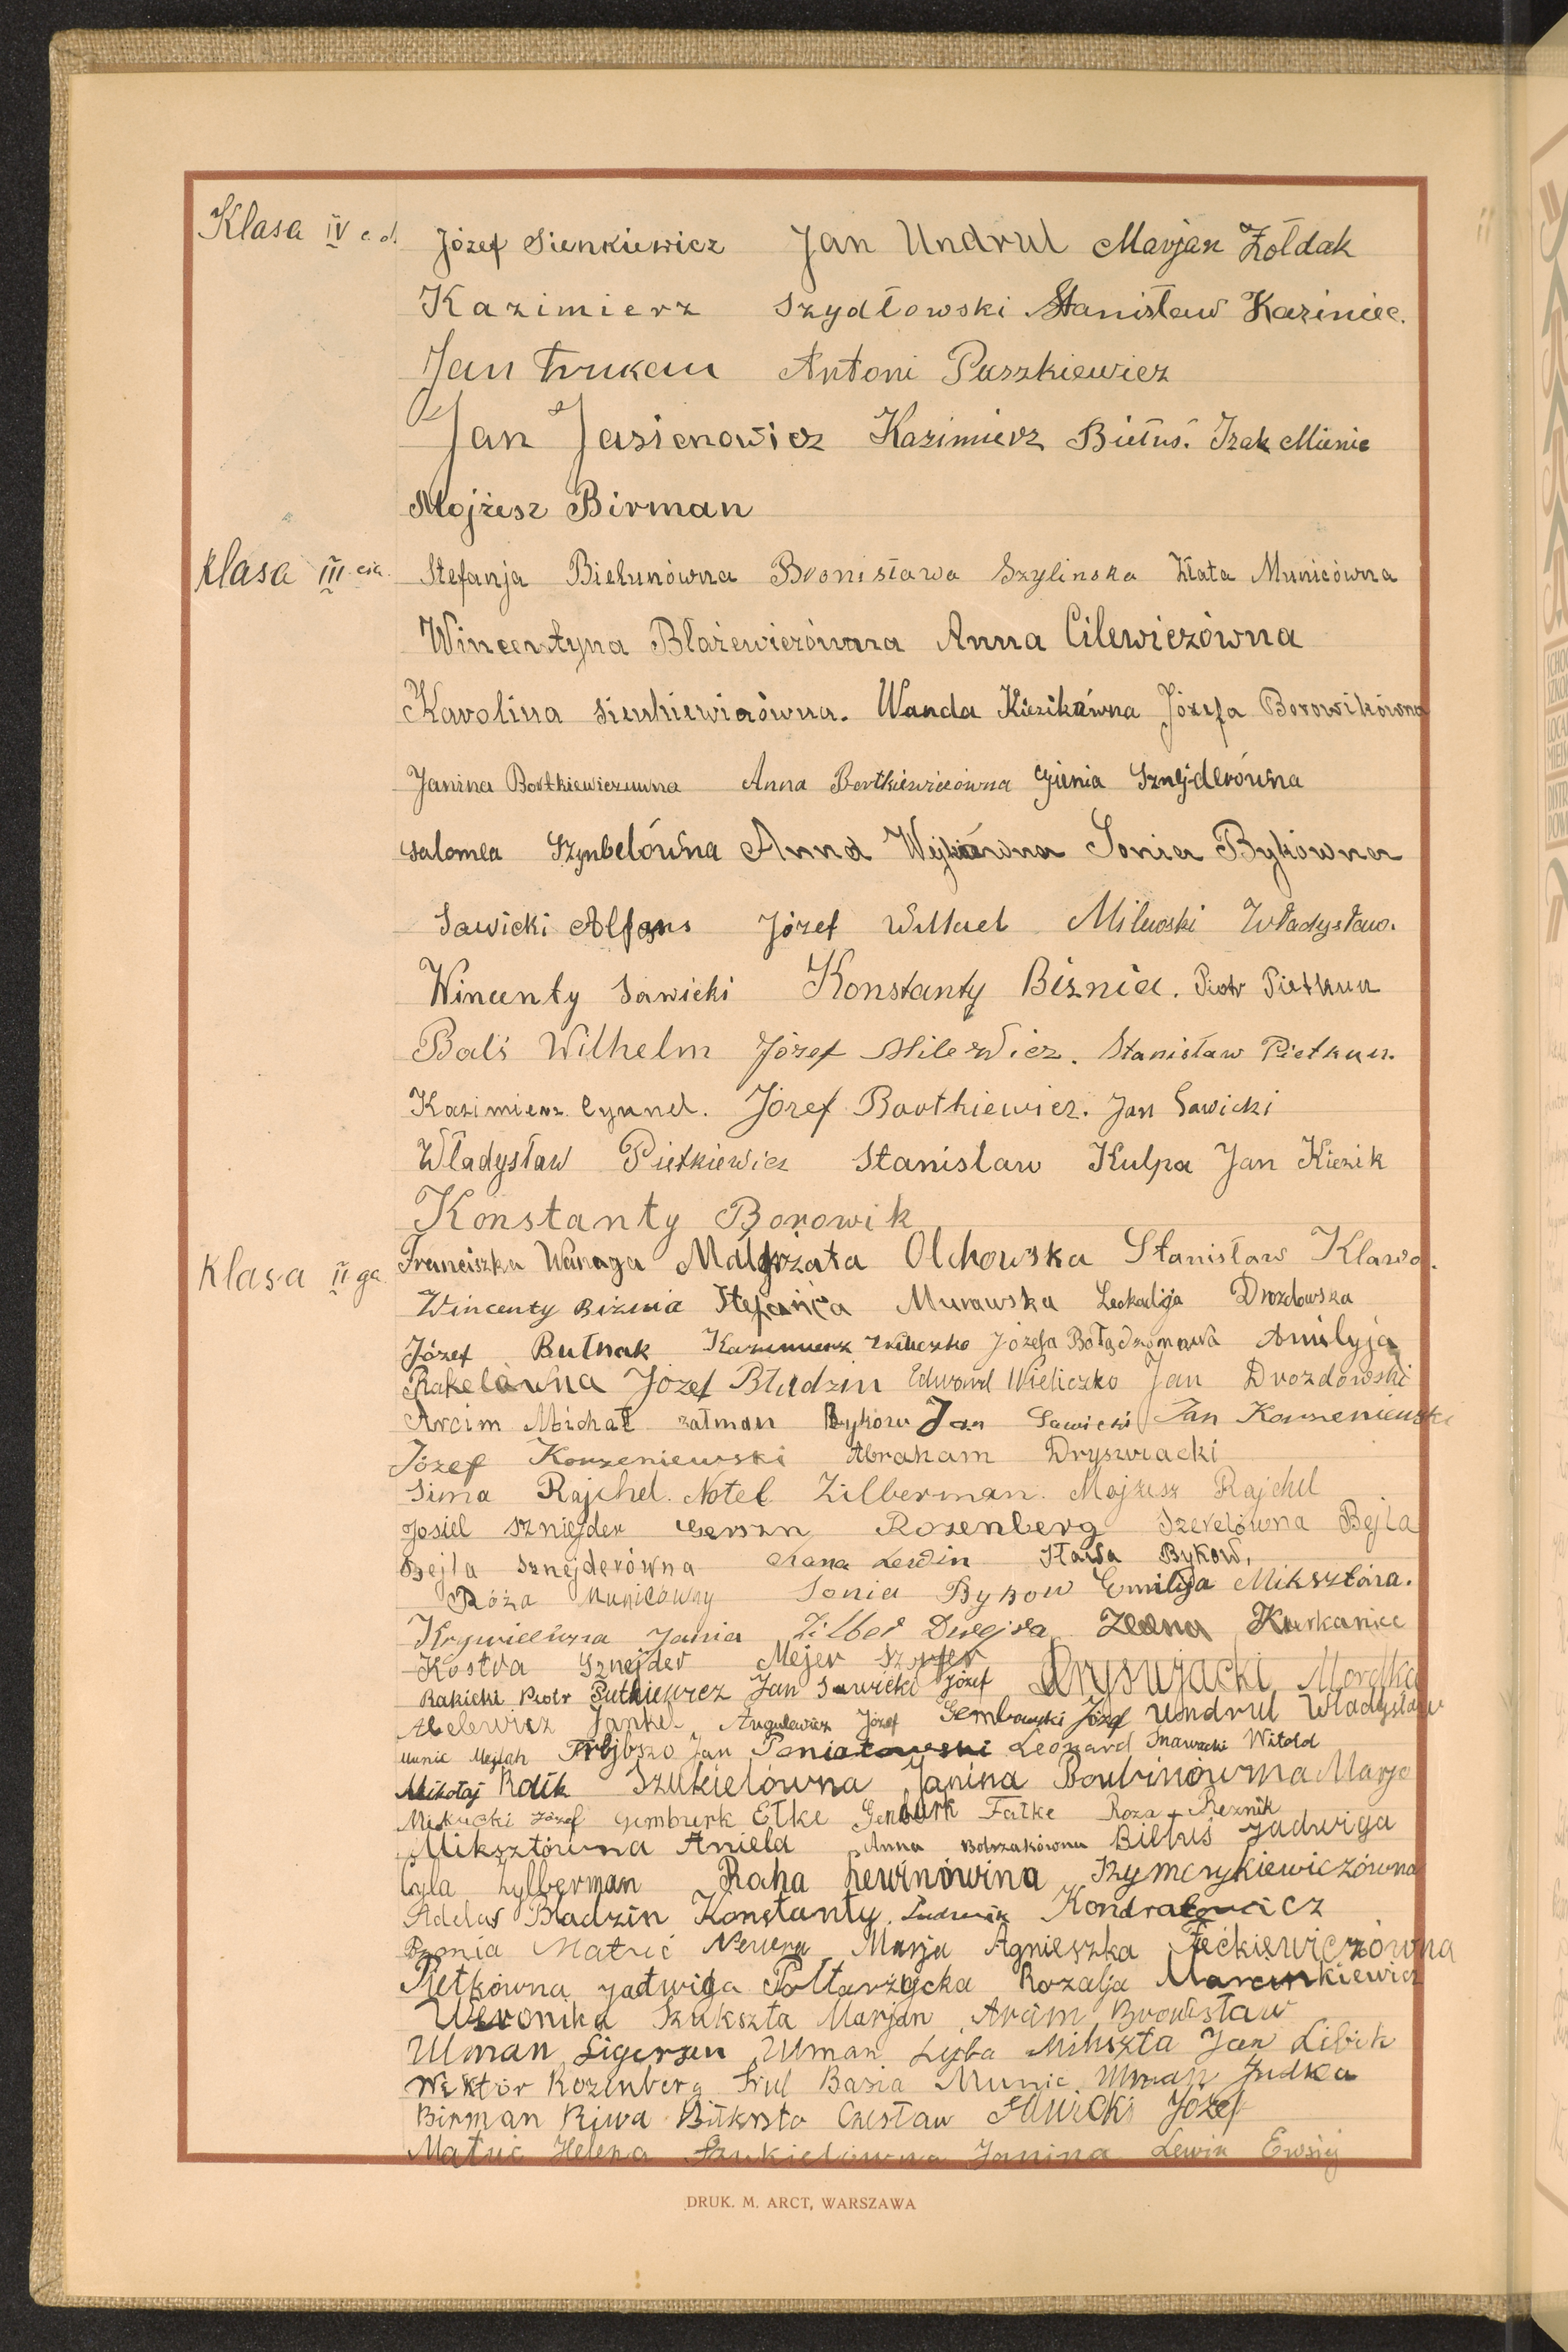 Klasa IV c.d. Józef Sienkiewicz Jan Undrul Marjan Żołdak
Kazimierz Szydłowski Stanisław Kaziniec.
Jan Antoni Paszkiewicz
Jan Jasienowicz Kazimierz Biełuś. Izak Munic
Mojżesz Birman
Klasa III cia. Stefanja Bielunówna Bronisława Szylinska Złata Municówna
Wincentyna Błażewiczówna Anna Cilewiczówna
Karolina Sienkiewiczówna. Wanda Kiezikówna Józefa Borowikówna
Janina Bortkiewiczuwna Anna Bortkiewiczówna Gienia Sznejderówna
Salomea Szynbelówna Anna Sonia Bykówna
Sawicki Alfons Józef Milewski Władysław.
Wincenty Sawicki Konstanty Biznia. Piotr Pietkun
Balś Wilhelm Józef Milewicz. Stanisław Pietkun.
Kazimierz Cynnel. Józef Bortkiewicz. Jan Sawicki
Władysław Pietkiewicz Stanisław Kulpa Jan Kiezik
Konstanty Borowik
Klasa II ga. Franciszka Wanaga Małgrzata Olchowska Stanisław Klawo.
Wincenty Biznia Stefańia Murawska Leokadja Drozdowska
Józef Butnak Kazimierz Wieliczko Józefa Amilyja
Rakelówna Józef Bładzin Edward Wieliczko Jan Drozdowski
Arcim Michał załman Bykow Jan Sawicki Jan Korzeniewski
Józef Korzeniewski Abraham Dryswiacki
Sima Rajchel. Notel Zilberman. Mojżesz Rajchel
Josiel Szniejder Gerszn Rozenberg Szerelówna Bejla
Szejla Sznejderówna Chana Lewin Sława Bykow,
Róża Municówny Sonia Bykow Emilija Miksztóna.
Krywicówna Jania Zilber Dwejra Kurkaniec
Kostra Sznejder Mejer Sznejer
Rakicki Piotr Putkiewicz Jan Sawicki Józef Dryswjacki Mordka
Abelewicz Jankel, Angulewicz Józef Gembawski Józef Undrul Władysław
Munic Mejłah Jan Poniatowski Leonard Witold
Mikołaj Rdik Szukielówna Janina Boubinówna Marja
Józef Gemburk Etke Genburk Fałke Roza Reznik
Miksztówna Aniela Anna Biełuś Jadwiga
Cyla Zylberman Raha Lewinówina Szymcrykiewiczówna
Adelas Bładzin Konstanty. Ludwik Kondratowicz
Bronia Matuć Marja Agnieszka Feckiewiczówna
Pietkówna Jadwiga Połtarzycka Rozalja Marcinkiewicz
Weronika Szukszta Marjan Arcim Bronisław
Ulman Ulman Lejba Mikszta Jan Libik
Wiktor Rozenberg Basia Munic. Ulman Judka
Birman Riwa Czesław Sawicki Józef
Matuć Helena Szukielówna Janina Lewin
DRUK. M. ARCT, WARSZAWA